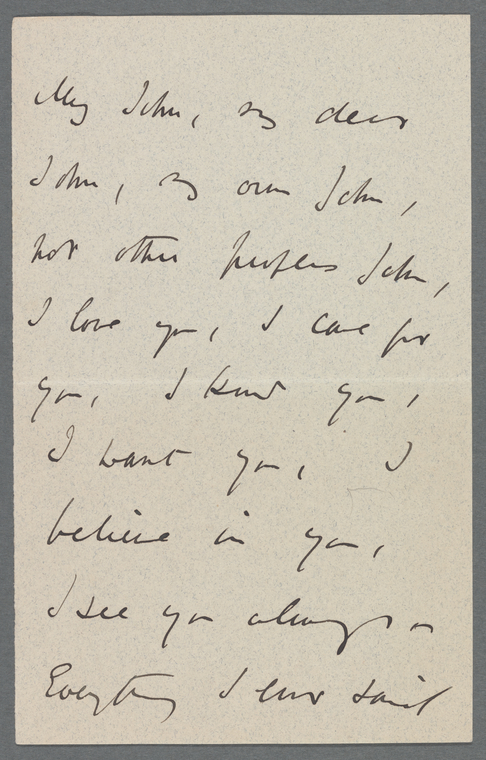 My John, my dear
John, my own John,
not other peoples John,
I love you, I care for
you, I know you,
I want you, I
believe in you,
I see you always
Everything I ever said